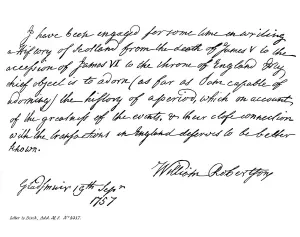 I have been engaged for some time in writing
a History of Scotland from the death of James V to the
accession of James VI to the throne of England. My
chief object is to adorn (as far as I am capable of
adorning) the history of a period, which on account
of the greatness of the events, & their close connection
with the transactions in England deserves to be better
known.
William Robertson
Gladsmuir 19th Sepr
1757
Letter to Birch, Add. M.S. No 4317.